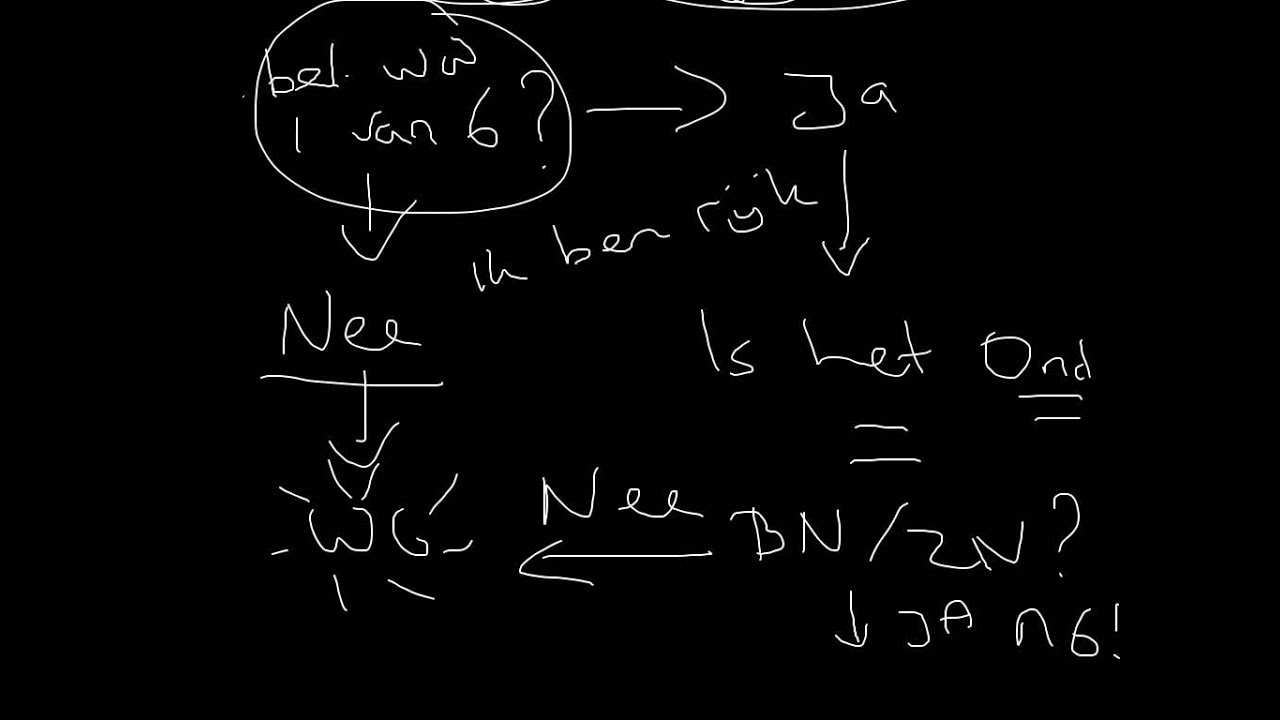 bel. ww
1 van 6?
Ja
ik ben rijk
Nee
Is het Ond
WG
Nee
BN/ZN?
JA NG!